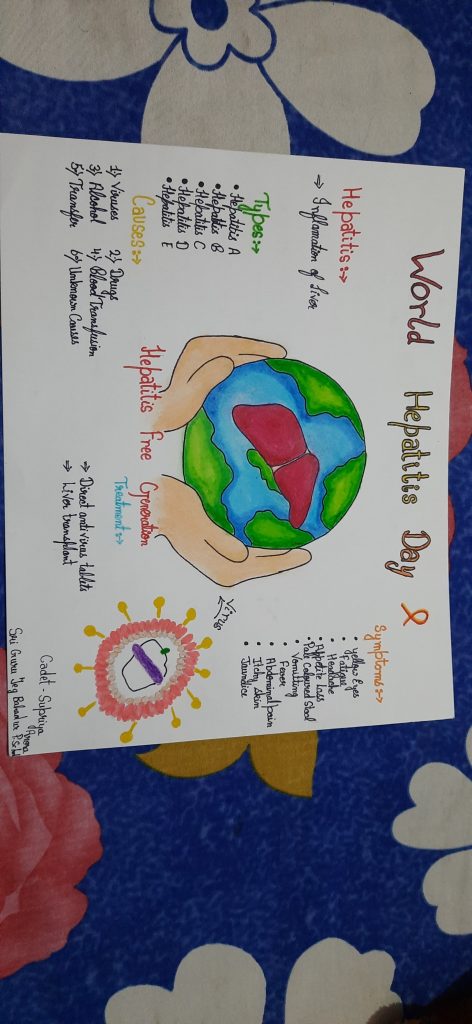 World Hepatitis Day
Hepatitis :→
→ Inflamation of liver
Types :→
• Hepatitis A
• Hepatitis B
• Hepatitis C
• Hepatitis D
• Hepatitis E
Causes :→
1) Viruses 2) Drugs
3) Alcohol 4) Blood Transfusion
5) Transfer 6) Unknown Causes
Symptoms :→
• Yellow Eyes
• Fatigue
• Headache
• Appetite Loss
• Pale Coloured Stool
• Vomitting
• Fever
• Abdominal pain
• Itchy skin
• Jaundice
Hepatitis Free Generation
Treatment :→
→ Direct antivirus tablets
→ Liver transplant
Cadt - Supriya
Arora
Sri Guru Teg Bahadur